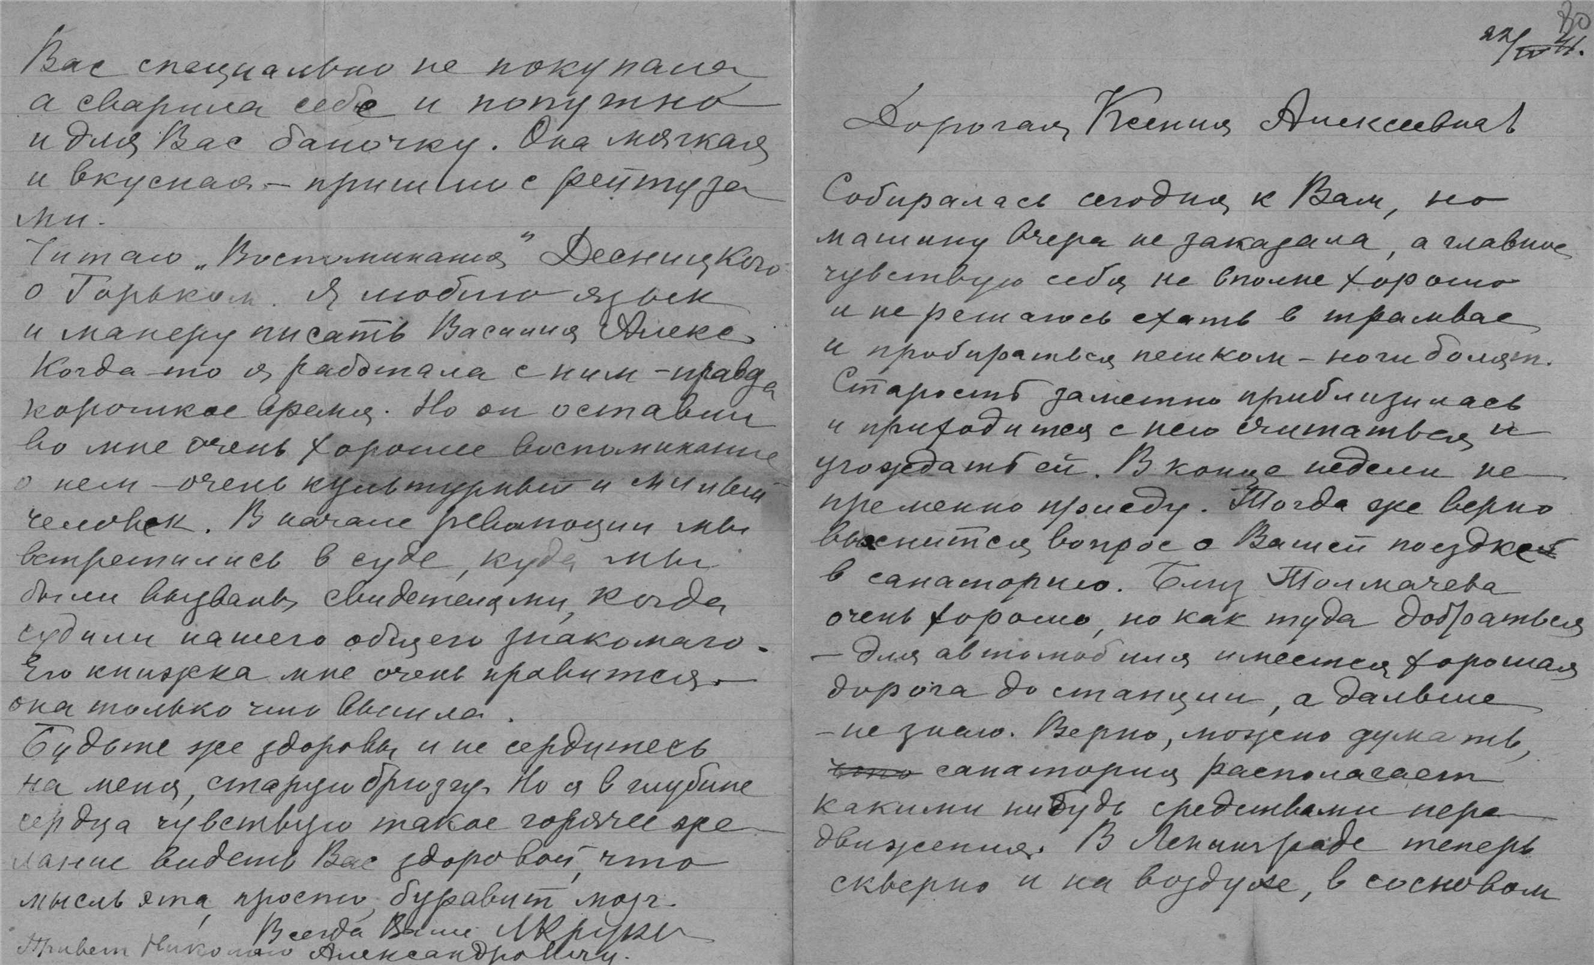 Вас специально не покупала
а сварила себе и попутно
и для Вас баночку. Она мягкая
и вкусная – пришлю с рейтуза
ми.
Читаю „Воспоминания" Десницкого
о Горьком. Я люблю язык
и манеру писать Василия Алекс.
Когда-то я работала с ним – правда
короткое время. Но он оставил
во мне очень хорошее воспоминание
о нем – очень культурный и милый
человек. В начале революции мы
встретились в суде, куда мы
были вызваны свидетелями, когда
судили нашего общего знакомаго.
Его книжка мне очень нравится –
она только что вышла.
Будьте же здоровы и не сердитесь
на меня, старую брюзгу. Но я в глубине
сердца чувствую такое горячее же
лание видеть Вас здоровой, что
мысль эта, просто, буравит мозг.
Всегда Ваша
Привет Николаю Александровичу.
30
22/IV 41.
Дорогая Ксения Алексеевна
Собиралась сегодня к Вам, но
машину вчера не заказала, а главное
чувствую себя не вполне хорошо
и не решаюсь ехать в трамвае
и пробираться пешком – ноги болят.
Старость заметно приблизилась
и приходится с нею считаться и
угождать ей. В конце недели не
пременно приеду. Тогда же верно
выяснится вопрос о Вашей поездке
в санаторию. Близ Толмачева
очень хорошо, но как туда добраться
– для автомобиля имеется хорошая
дорога до станции, а дальше
– не знаю. Верно, можно думать,
что санатория располагает
какими нибудь средствами пере
движения. В Ленинграде теперь
скверно и на воздухе, в сосновом